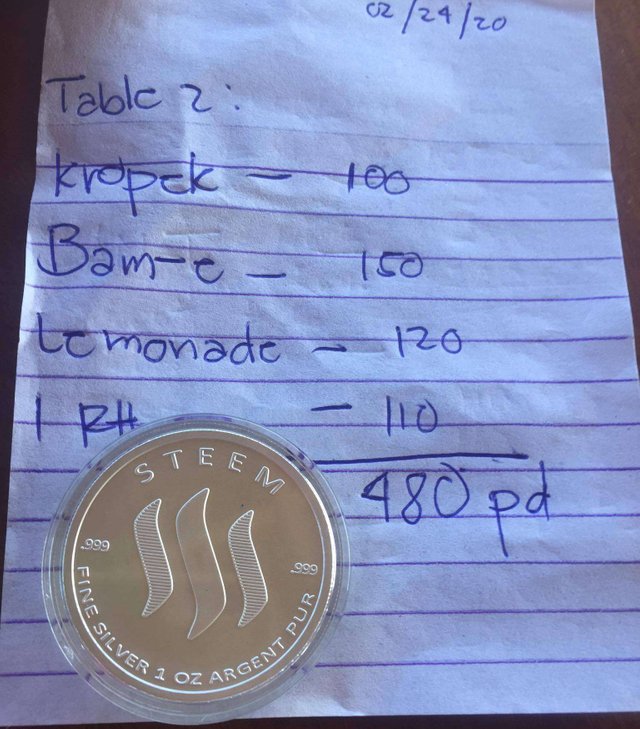 02/24/20
Table 2:
Kropek - 100
Bam-e - 150
Lemonade - 120
1 RH - 110
480 pd
STEEM
.999 .999
FINE SILVER 1 OZ ARGENT PUR